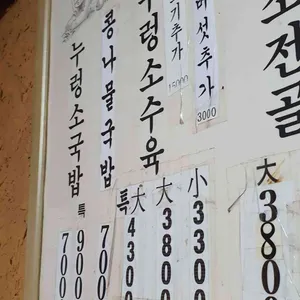 누렁소국밥
특
700
900
콩나물국밥
700
누렁소수육
특 大 小
4300
3800
3300
기추가
15000
버섯추가
3000
소전골
大
3800